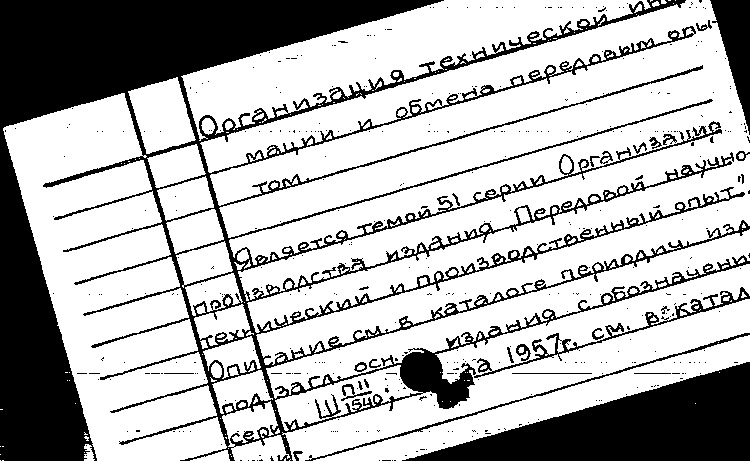 Организация технической инфор-
мации и обмена передовым опы-
том.
Является темой 51 серии Организация
производства издания „Передовой научно-
технический и производственный опыт".
Описание см. в каталоге периодич. изд.
под загл. осн. издания с обозначением
серии. Ш П11/1540; за 1957г. см. в катал.